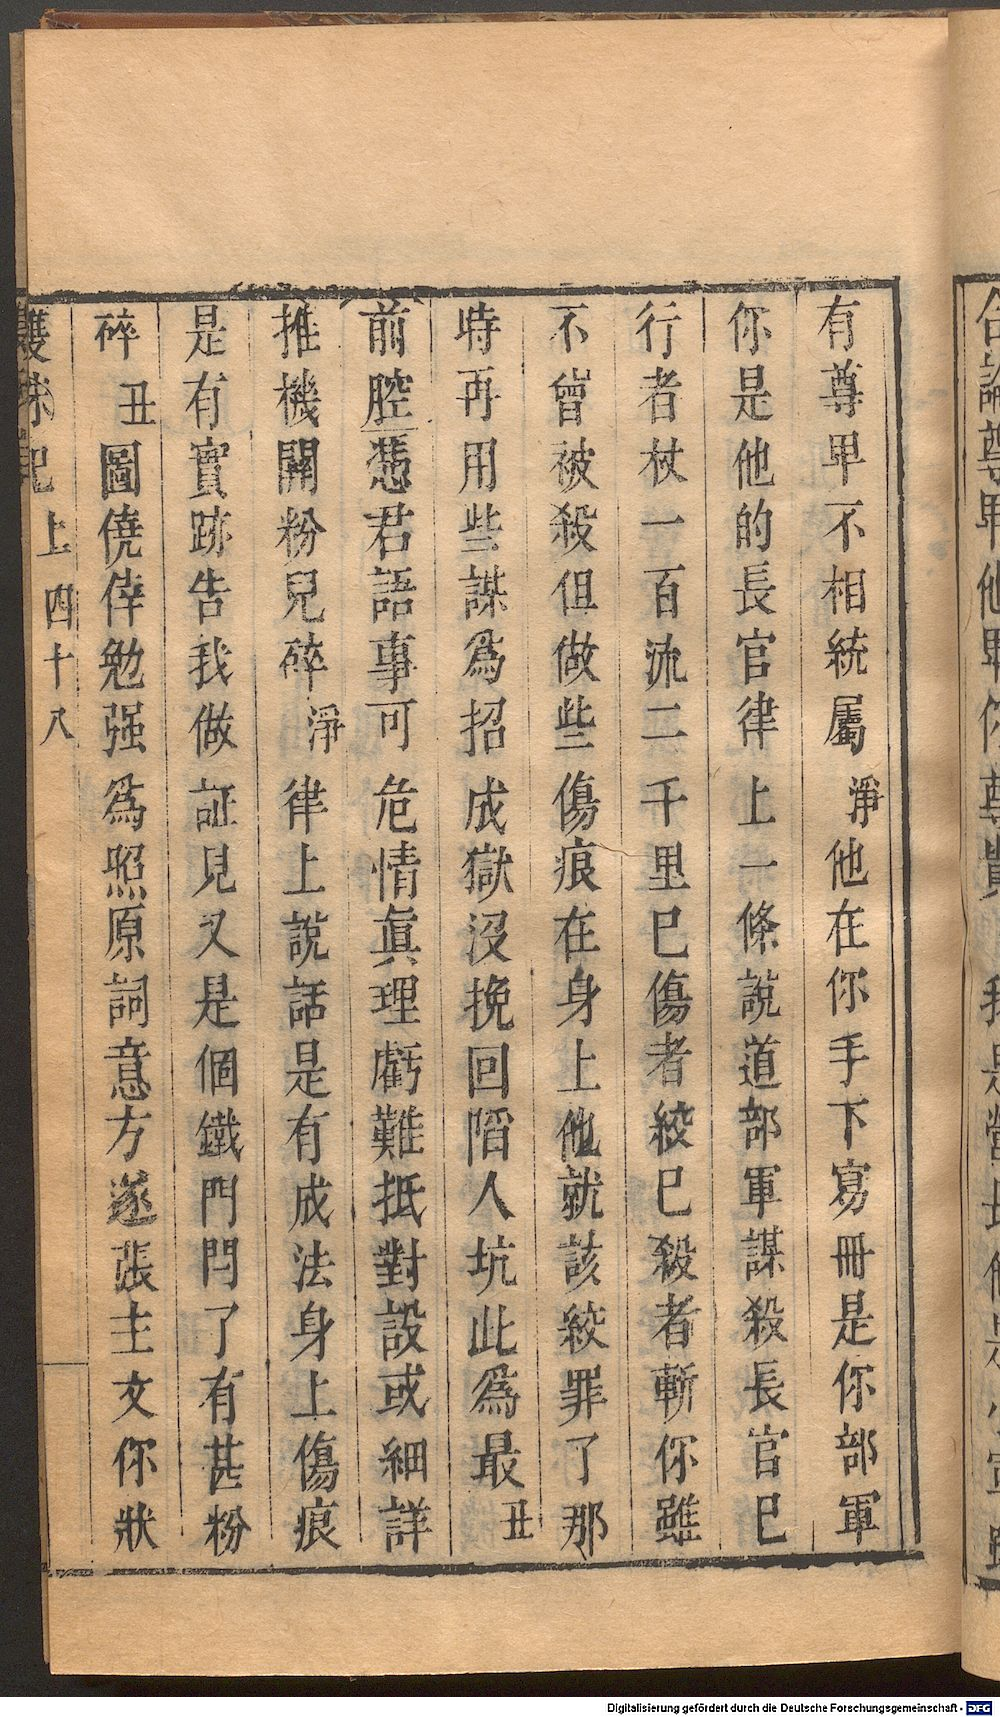 有尊卑不相統屬淨他在你手下寫冊是你部軍
你是他的長官律上一條說道部軍謀殺長官已
行者杖一百流二千里已傷者絞已殺者斬你雖
不曾被殺但做些傷痕在身上他就該絞罪了那
時再用些謀為招成獄沒挽回陷人坑此為最丑
前腔憑君語事可危情眞理虧難抵對設或細詳
推機關粉兒碎淨律上說話是有成法身上傷痕
是有實跡告我做証見又是個鐵門閂了有甚粉
碎丑圖僥倖勉强為照原詞意方遂張主文你狀
雙珠記上四十八
Digitalisierung gefördert durch die Deutsche Forschungsgemeinschaft - DFG